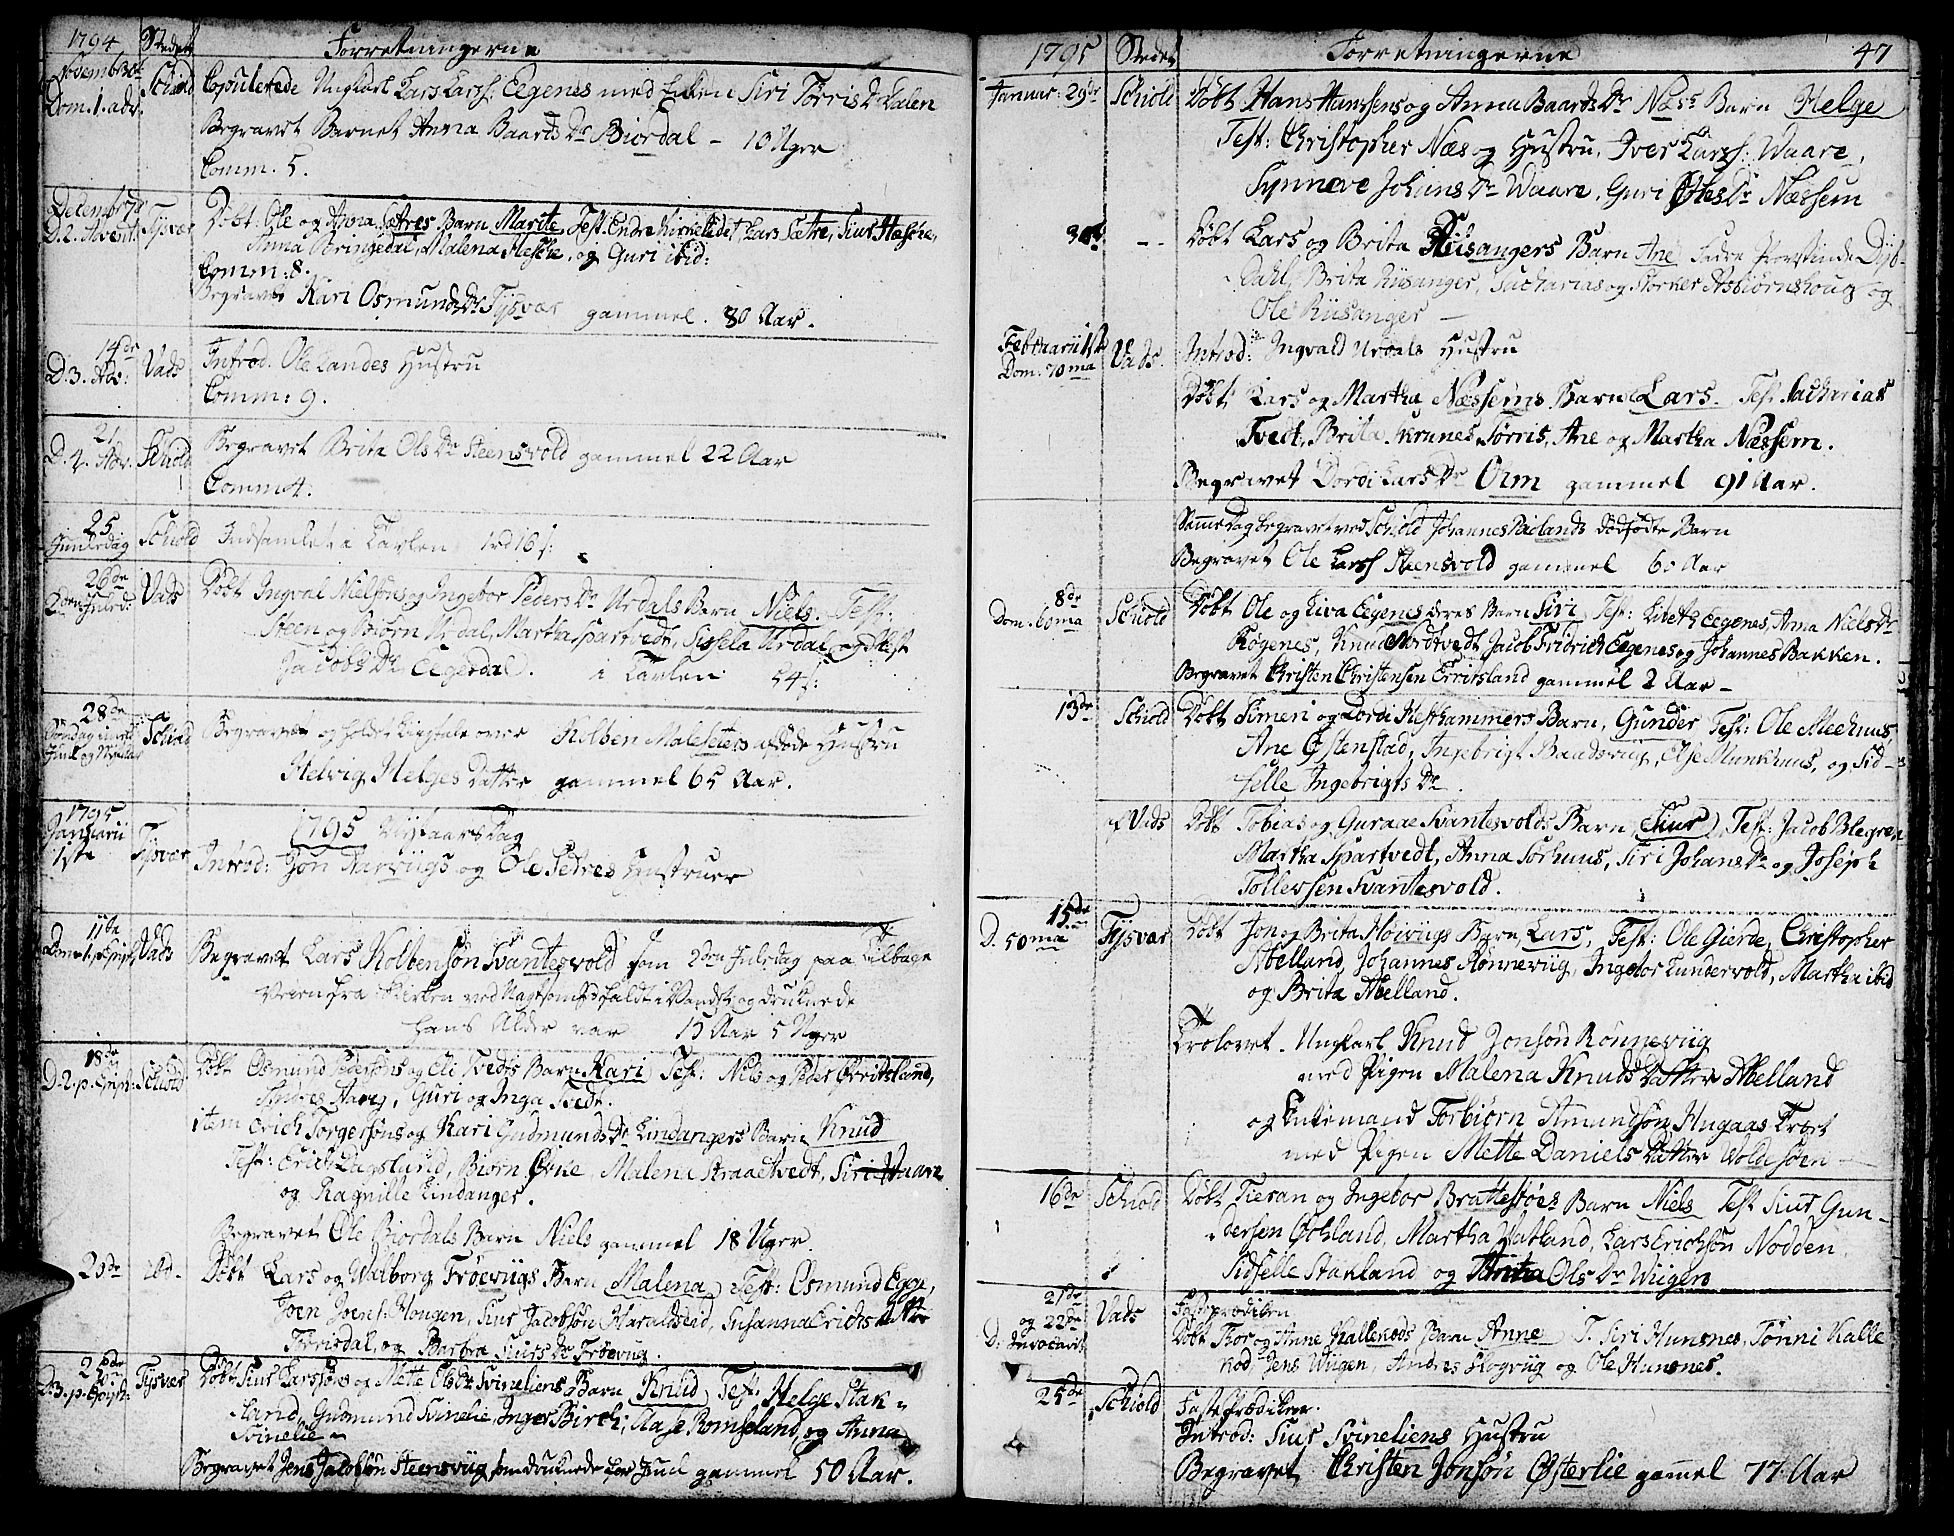 1794 Stedet Forretningerne
Novembr 30te Dom. 1. adv. Schiold Copulerede Ungkarl Lars Larss: Eegenes med Enken Siri Torris Dr Dalen
Begravet Barnet Anna Baards Dr Biordal - 10 Uger
Comm. 5.
Decembr 7de D. 2. Advent Tysvær Döbt Ole og Anna Sætres Barn Marite, Test. Endre Lars Sætre, Siur Hesche,
Anna Bringedal, Malena Hesche, og Guri ibid:
Comm: 8.
Begravet Kari Osmunds Dr Tysvær gammel. 80 Aar.
14de D. 3. Adv: Vads Introd. Ole Landes Hustru
Comm: 9.
21 D. 4. Adv. Schiold Begravet Brita Ols Dr Steensvold gammel 22 Aar
Comm 4.
25 Juuledag Schiold Indsamlet i Tavlen 1 rd 16 s:
26de 2den Juled: Vads Döbt Ingval Nielsöns og Ingebor Peders Dr Urdals Barn Niels. Test:
Steen og Biörn Urdal, Martha Spartvedt, Sissela Urdal, og
Jacobs Dr Eegerdal. i Tavlen 24 s:
28de Söndag imell: Juul og Nytaar Schiold Begravet og holdt Liigtale over Kolben Malesetes afdöde Hustru
Helvig Helges Datter gammel 65 Aar.
1795 Januarii 1ste Tysvær 1795 Nytaarsdag
Introd: Jon Aarviigs og Ole Setres Hustruer
11te Dom: 1. p. Epiph. Vads Begravet Lars Kolbensön Svantesvold som 2den Juledag paa Tilbage
Veien fra Kirken ved faldt i Vandet og druknede
hans Alder var 15 Aar 5 Uger
18de D. 2. p. Epiph. Schiold Döbt Osmund Pedersöns og Eli Tvedts Barn Kari Test: Niels og Peder Erritsland,
Guri og Inga Tvedt.
item Erich Torgersöns og Kari Gudmunds Dr Lindangers Barn Knud
Test: Erich Dagsland, Biörn Övne, Malena Straaetvedt, Siri Vaare
og Ragnille Lindanger.
Begravet Ole Biordals Barn Niels gammel 18 Uger.
20de Döbt Lars og Walborg Fröeviigs Barn Malena Test: Osmund Egge,
Joen Joens: Hougen, Siur Jacobsön Haraldseid, Susanna Erichs Datter
Frörisdal, og Barbra Siurs Dr Fröevig.
25de D. 3. p. Epiph: Tysvær Döbt Siur Larssöns og Mette Ols Dr Svineliens Barn Knud Test: Helge Stak-
land, Gudmund Svinelie, Inger Birch; Aase Romseland, og Anna
Svinelie
Begravet Jens Jacobsön Steensviig, som druknede för Juul gammel 50 Aar.
1795 Stedet Forretningerne 47
Januar: 29de Schiold Döbt Hans Hanssens og Anna Baards Dr Næss Barn Helge
Test: Christopher Næs og Hustru, Iver Larss: Waare,
Synneve Johans Dr Waare, Guri Oles Dr Næssem
30te - - Döbt Lars og Brita Riisangers Barn Ane Fadre Dyb-
Dahl, Brita Riisanger, Sacharias og Storker Asbiörnshoug og
Ole Riisanger -
Februarii 1ste Dom. 70ma Vads. Introd: Ingvald Urdals Hustru
Döbt Lars og Martha Næssems Barn Lars. Test. Sacharias
Tvedt, Brita Krunes, Torris, Ane og Martha Næssem.
Begravet Dordi Lars Dr Orm gammel 91 Aar.
Samme dag begravet ved Schiold Johannes dödfödte Barn
Begravet Ole Larss Steensvold gammel 60 Aar
8de Dom. 60ma Schiold Döbt Ole og Liva Eegenes deres Barn Siri Test: Livet Eegenes, Anna Niels Dr
Rögenes, Knud Nordtvedt Jacob Fridrich Eegenes og Johannes Bakken.
Begravet Christen Christensen Erritsland gammel 2 Aar -
13de Schiold Döbt Simeri og Dordi Hesthammers Barn, Gunder Test: Ole Meehuus,
Ane Östenstad, Ingebrigt Baadsviig, Else Munkhuus, og Sid-
selle Ingebrigts Dr.
Vads Döbt Tobias og Guraae Svantesvolds Barn Siur Test: Jacob Blegren
Martha Spartvedt, Anna Sörhuus, Siri Johans Dr og Joseph
Tollevsen Svantesvold.
15de D. 50ma Tysvær Döbt Jon og Brita Höiviigs Barn, Lars, Test: Ole Gierde, Christopher
Melland, Johannes Rönneviig, Ingebor Lundervold, Martha ibid
og Brita Melland.
Trolovet. Ungkarl Knud Jonsön Rönneviig
med Pigen Malena Knuds Datter Melland
og Enkemand Torbiörn Amundsön Hugaas
med Pigen Mette Daniels Datter Woldesöen
16de Schiold Döbt Tieran og Ingebor Brattestöes Barn Niels Test Siur Gun-
dersen Öchland, Martha Vatland, Lars Erichsön Nodden
Sidselle Stakland og Anna Ols Dr Wiigen
21de og 22de D: Invocavit Vads Fasteprædiken
Döbt Thor og Anne Kallekods Barn Anne T. Siri Hunsnes, Tönni Kalle
kod, Jens Wiigen, Andres Kogviig og Ole Hunsnes.
25de Schiold Fasteprædiken.
Introd: Siur Svineliens Hustru
Begravet Christen Jonsön Österlie gamel 77 Aar